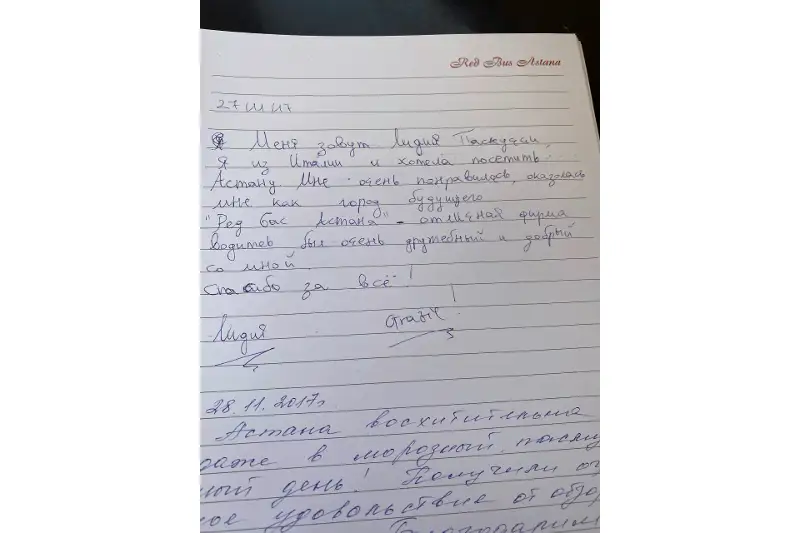 Red Bus Astana
27 III 17
Меня зовут Лидия Паскуали,
я из Италии и хотела посетить
Астану. Мне очень понравилось, оказалась
мне как город будущего
"Ред бас Астана" - отличная фирма
водитев был очень дружебный и добрый
со мной.
Спасибо за всё!
Лидия Grazie!
28.11.2017г
Астана восхитительна
даже в морозный, пасму
ный день! Получили
ное удовольствие от обзо
Благодарим